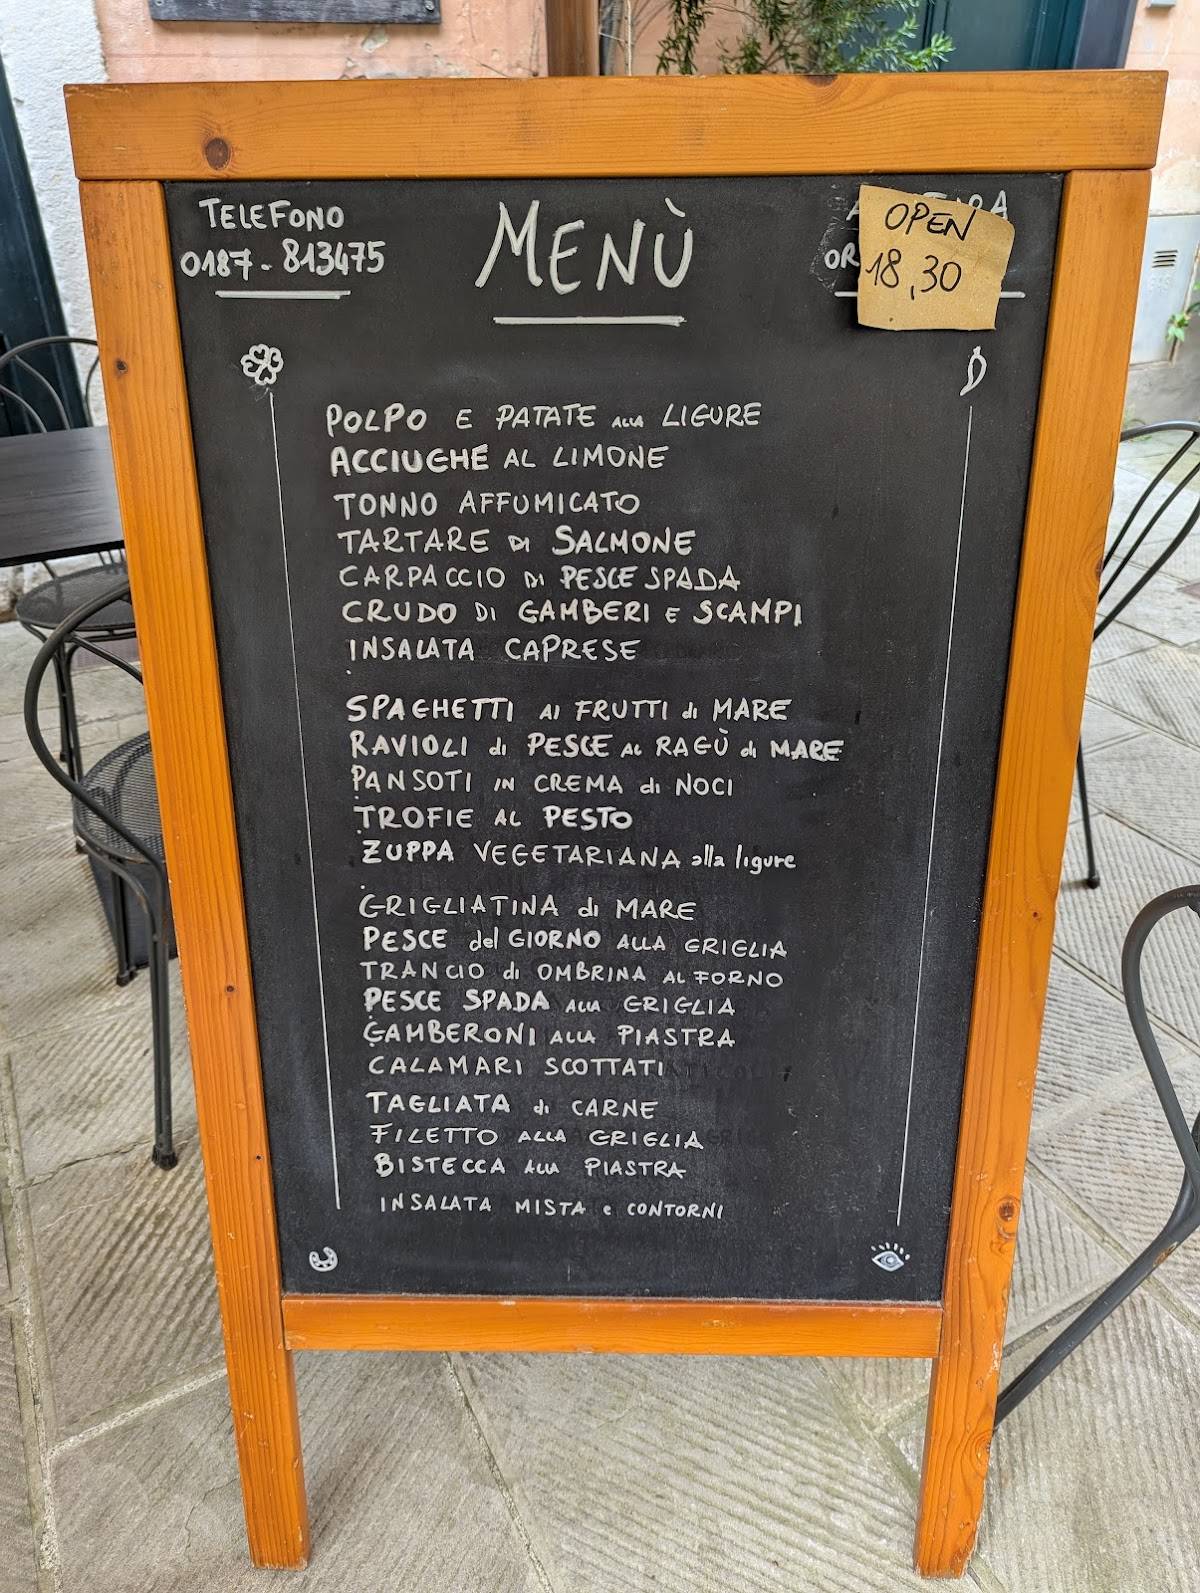 TELEFONO
0187-813475
MENÙ
OPEN
18,30
OR
POLPO E PATATE ALLA LIGURE
ACCIUGHE AL LIMONE
TONNO AFFUMICATO
TARTARE DI SALMONE
CARPACCIO DI PESCE SPADA
CRUDO DI GAMBERI E SCAMPI
INSALATA CAPRESE
SPAGHETTI AI FRUTTI di MARE
RAVIOLI di PESCE AL RAGÙ di MARE
PANSOTI IN CREMA di NOCI
TROFIE AL PESTO
ZUPPA VEGETARIANA alla ligure
GRIGLIATINA di MARE
PESCE del GIORNO ALLA GRIGLIA
TRANCIO di OMBRINA AL FORNO
PESCE SPADA ALLA GRIGLIA
GAMBERONI ALLA PIASTRA
CALAMARI SCOTTATI
TAGLIATA di CARNE
FILETTO ALLA GRIGLIA
BISTECCA ALLA PIASTRA
INSALATA MISTA e CONTORNI